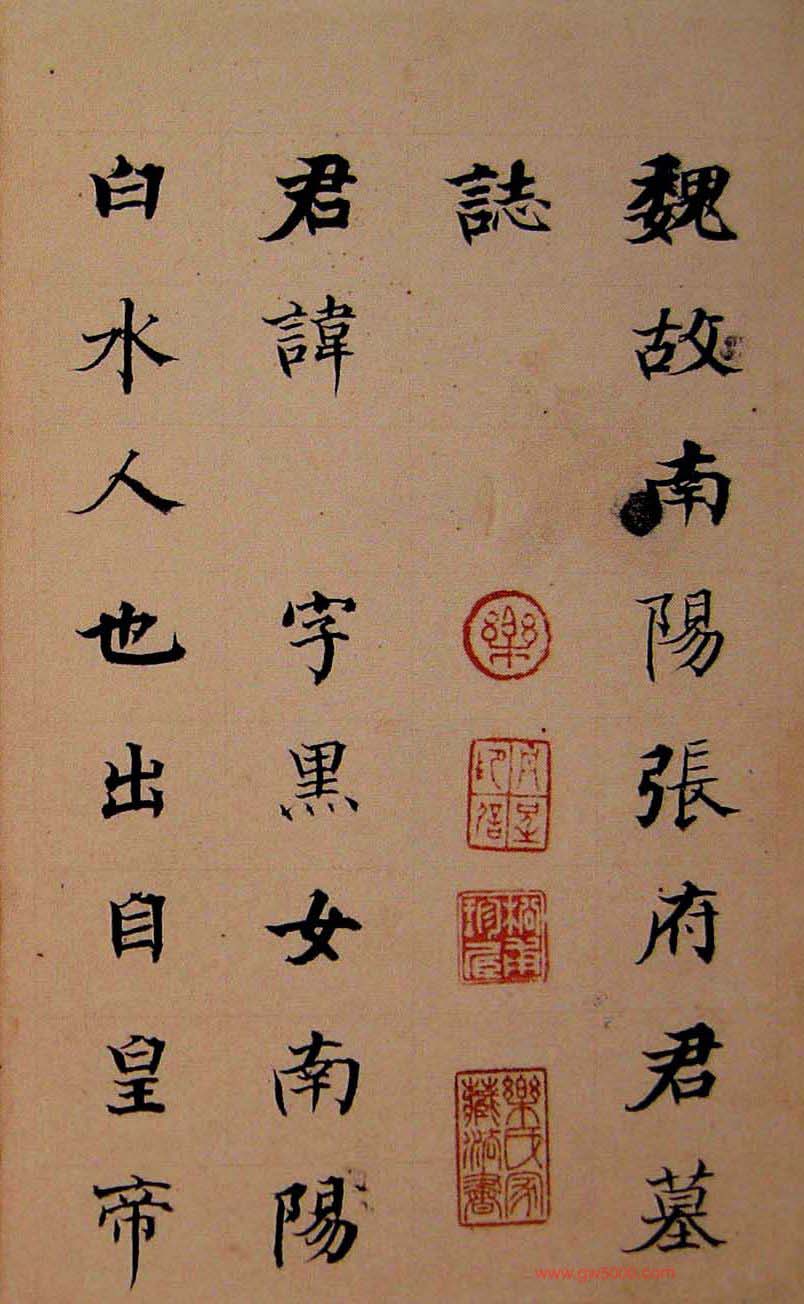 魏故南陽張府君墓
誌
君諱 字黑女南陽
白水人也出自皇帝
樂
樂氏家藏法書
www.gw5000.com